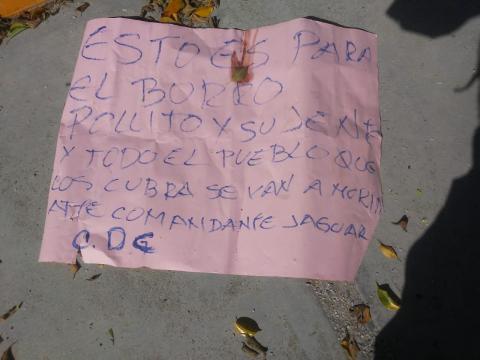 ESTO ES PARA
EL BURRO
POLLITO Y SU JENTE
Y TODO EL PUEBLO QUE
LOS CUBRA SE VAN A MORIR
ATTE COMANDANTE JAGUAR
C.D.G